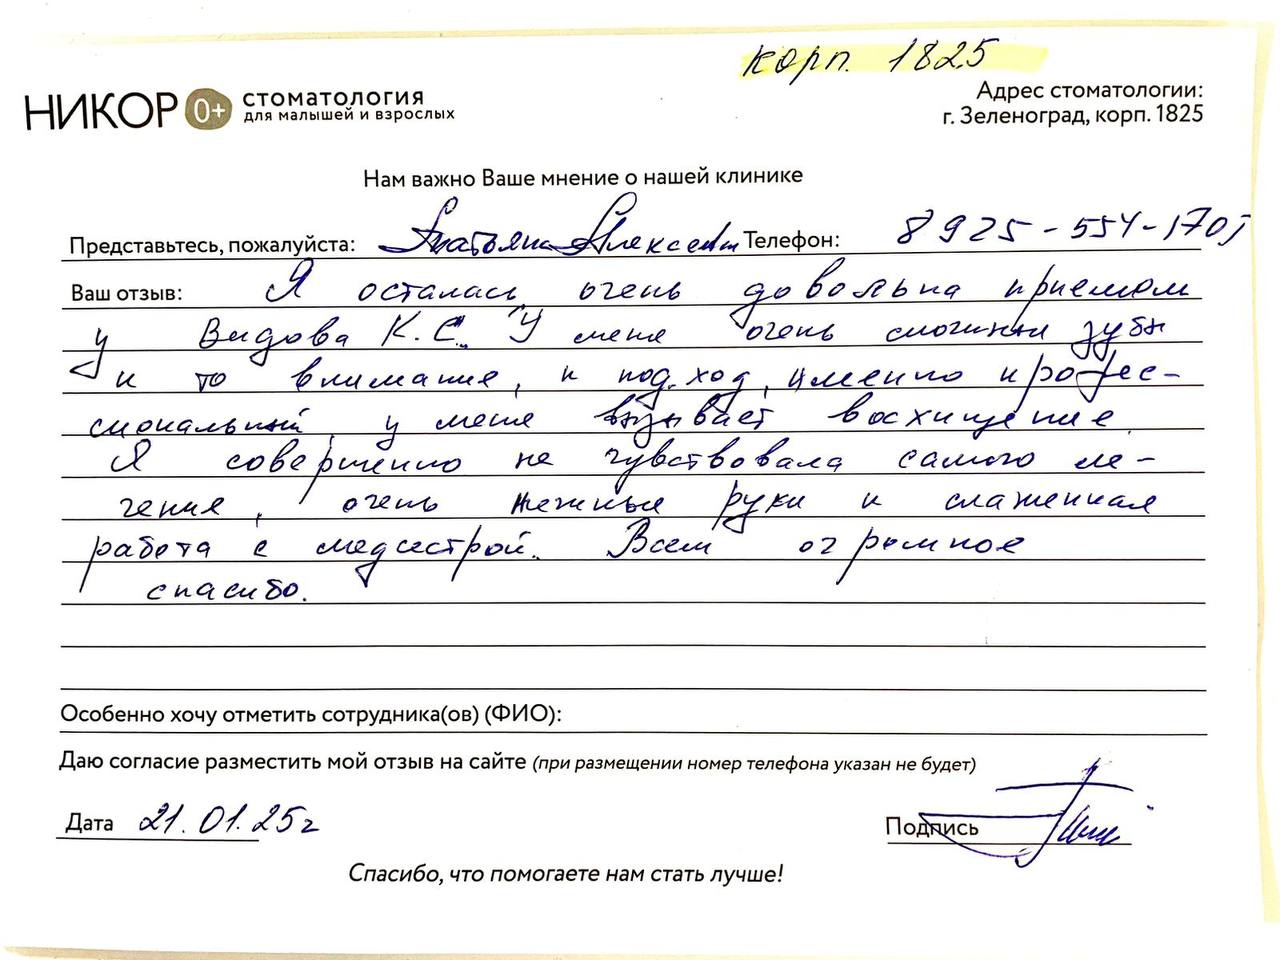 корп. 1825
НИКОР 0+ стоматология
для малышей и взрослых
Адрес стоматологии:
г. Зеленоград, корп. 1825
Нам важно Ваше мнение о нашей клинике
Представьтесь, пожалуйста: Татьяна Телефон: 8925-554-1705
Ваш отзыв: Я осталась очень довольна приемом
у Видова К.С. У меня очень сложные зубы
и то внимание, и подход, именно профес-
сиональный, у меня вызывает восхищение.
Я совершенно не чувствовала самого ле-
чения, очень нежные руки и слаженная
работа с медсестрой. Всем огромное
спасибо.
Особенно хочу отметить сотрудника(ов) (ФИО):
Даю согласие разместить мой отзыв на сайте (при размещении номер телефона указан не будет)
Дата 21.01.25г
Подпись
Спасибо, что помогаете нам стать лучше!